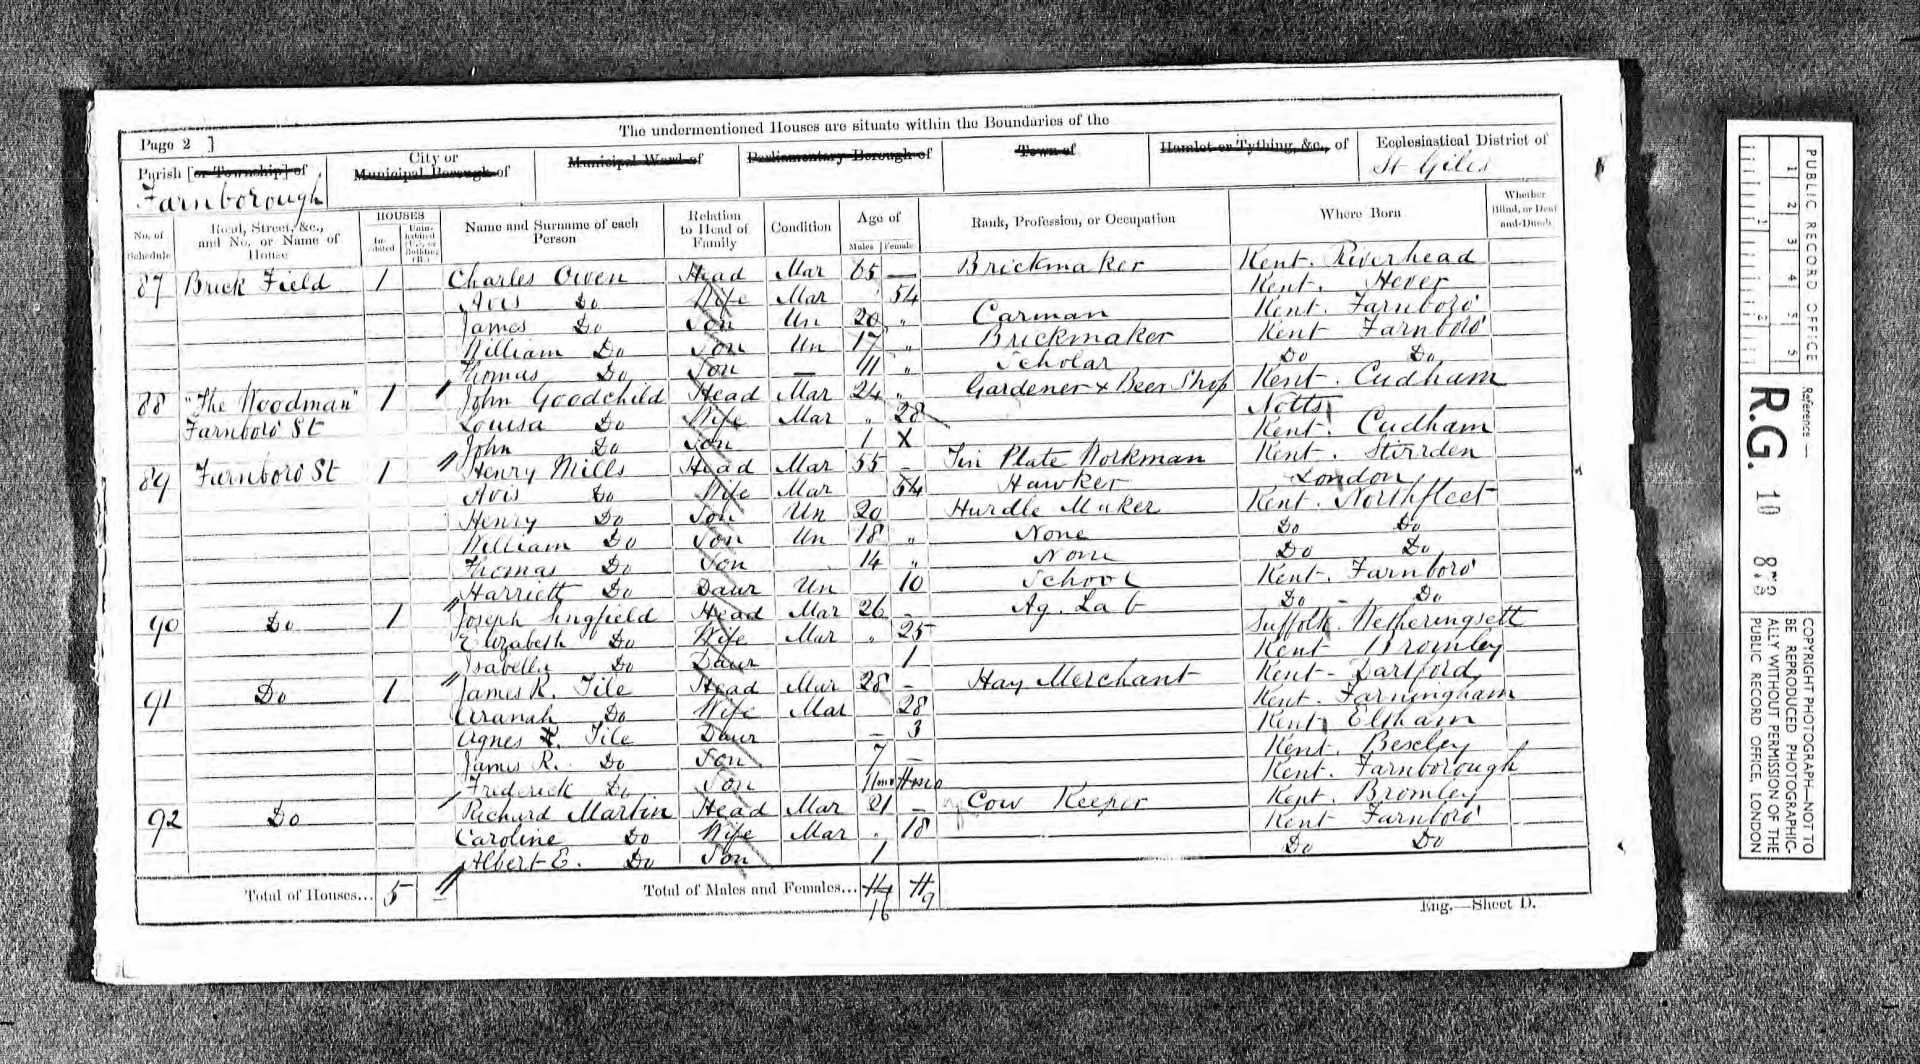 The undermentioned Houses are situate within the Boundaries of the
Page 2 ]
Parish [or Township] of
Farnborough
City or
Municipal Borough of
Municipal Ward of
Parliamentary Borough of
Town of
Hamlet or Tything, &c., of
Ecclesiastical District of
St Giles
No. of Schedule
Road, Street, &c., and No. or Name of House
HOUSES
In-habited
Name and Surname of each Person
Relation to Head of Family
Condition
Age of
Males Females
Rank, Profession, or Occupation
Where Born
Whether Blind, or Deaf-and-Dumb
87 Brick Field 1 Charles Owen Head Mar 65 — Brickmaker Kent. Riverhead
Avis Do Wife Mar 54 Kent. Hever
James Do Son Un 20 „ Carman Kent. Farnboro'
William Do Son Un 17 „ Brickmaker Kent Farnboro'
Thomas Do Son — 11 „ Scholar Do Do
88 "The Woodman" 1 John Goodchild Head Mar 24 „ Gardener & Beer Shop Kent. Cudham
Farnboro' St Louisa Do Wife Mar „ 28 Notts
John Do Son 1 X Kent. Cudham
89 Farnboro' St 1 Henry Mills Head Mar 55 — Tin Plate Workman Kent.
Avis Do Wife Mar 54 Hawker London
Henry Do Son Un 20 Hurdle Maker Kent. Northfleet
William Do Son Un 18 „ None Do Do
Thomas Do Son 14 „ None Do Do
Harriett Do Daur Un 10 School Kent. Farnboro'
90 Do 1 Joseph Singfield Head Mar 26 — Ag. Lab Do — Do
Elizabeth Do Wife Mar „ 25 Suffolk. Wetheringsett
Isabella Do Daur 1 Kent Bromley
91 Do 1 James R. Tile Head Mar 28 — Hay Merchant Kent - Dartford
Do Wife Mar 28 Kent. Farningham
Agnes Tile Daur — 3 Kent Eltham
James R. Do Son 7 — Kent. Bexley
Frederick Do Son Kent. Farnborough
92 Do Richard Martin Head Mar 21 — Cow Keeper Kent. Bromley
Caroline Do Wife Mar „ 18 Kent Farnboro'
Albert E. Do Son 1 Do Do
Total of Houses... 5 Total of Males and Females... 16 9
Eng.—Sheet D.
PUBLIC RECORD OFFICE
1 2 3 4 5 6
1 2
Reference :—
R.G. 10 873
COPYRIGHT PHOTOGRAPH—NOT TO
BE REPRODUCED PHOTOGRAPHIC-
ALLY WITHOUT PERMISSION OF THE
PUBLIC RECORD OFFICE, LONDON